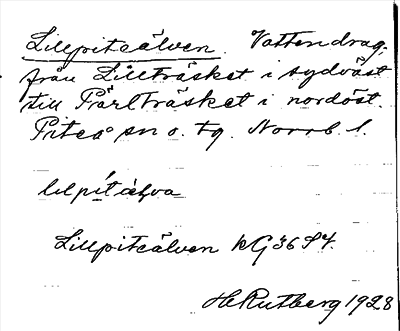 Lillpiteälven. Vattendrag.
från Lillträsket i sydväst
till Pärlträsket i nordöst.
Piteå sn o. tg. Norrb. l.
lilpitälva
Lillpiteälven kG 36 S4.
H Rutberg 1928